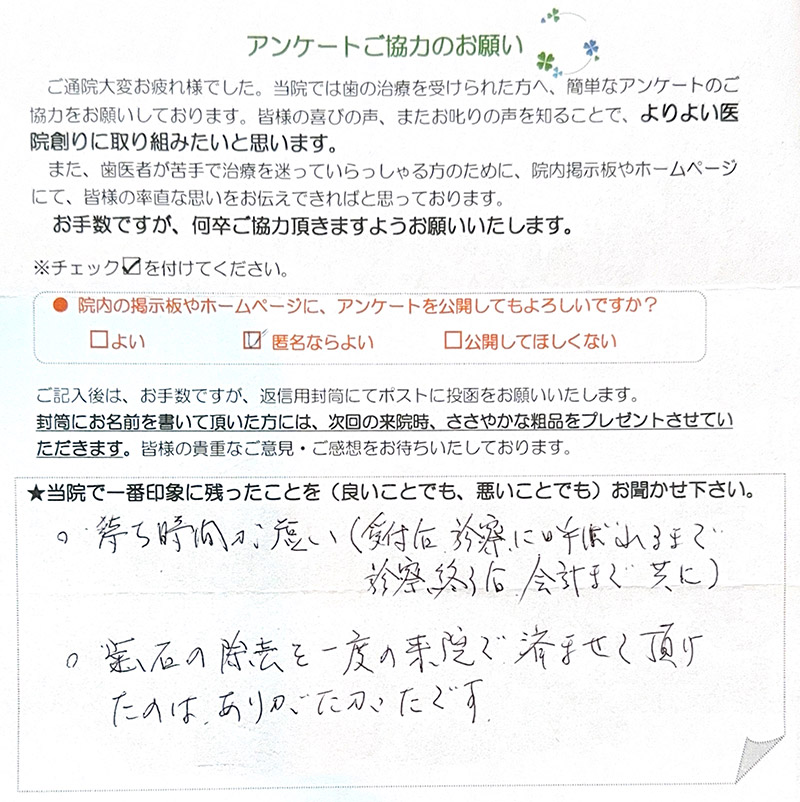 アンケートご協力のお願い
ご通院大変お疲れ様でした。当院では歯の治療を受けられた方へ、簡単なアンケートのご
協力をお願いしております。皆様の喜びの声、またお叱りの声を知ることで、よりよい医
院創りに取り組みたいと思います。
また、歯医者が苦手で治療を迷っていらっしゃる方のために、院内掲示板やホームページ
にて、皆様の率直な思いをお伝えできればと思っております。
お手数ですが、何卒ご協力頂きますようお願いいたします。
※チェック☑を付けてください。
● 院内の掲示板やホームページに、アンケートを公開してもよろしいですか？
□よい ☑匿名ならよい □公開してほしくない
ご記入後は、お手数ですが、返信用封筒にてポストに投函をお願いいたします。
封筒にお名前を書いて頂いた方には、次回の来院時、ささやかな粗品をプレゼントさせてい
ただきます。皆様の貴重なご意見・ご感想をお待ちいたしております。
★当院で一番印象に残ったことを（良いことでも、悪いことでも）お聞かせ下さい。
○ 待ち時間が短い（受付后、診察に呼ばれるまで
診察終了后、会計まで共に）
○ 歯石の除去を一度の来院で済ませて頂け
たのは、ありがたかったです。